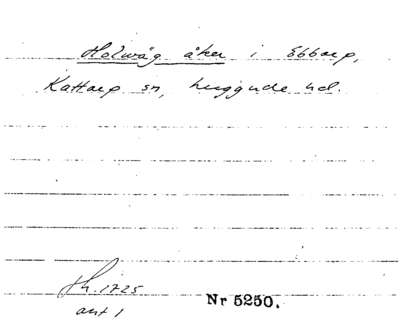 Holwåg åker i Ebbarp,
Kattarp sn, Luggude hd.
Sk. 1725
ant 1
Nr 5250.